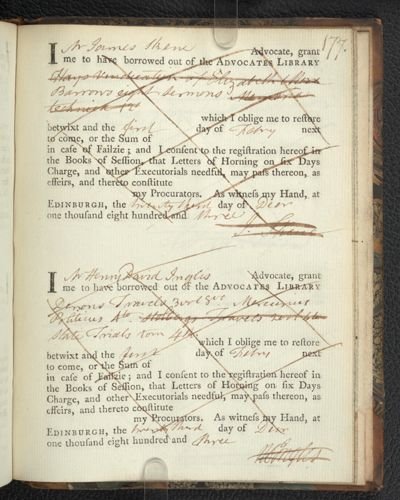 177.
I Mr James Skene Advocate, grant
me to have borrowed out of the ADVOCATES LIBRARY
Hays Vindication of Elizabeth &
Barrows eight Sermons
which I oblige me to restore
betwixt and the first day of Febry next
to come, or the Sum of
in case of Failzie; and I consent to the registration hereof in
the Books of Session, that Letters of Horning on six Days
Charge, and other Executorials needful, may pass thereon, as
effeirs, and thereto constitute
my Procurators. As witness my Hand, at
EDINBURGH, the twenty third day of Decr
one thousand eight hundred and three
J. Skene
I Mr Henry David Inglis Advocate, grant
me to have borrowed out of the ADVOCATES LIBRARY
Travels 3 vol 8vo Mercurius
Politicus 4to Travels
State Trials vom 4th
which I oblige me to restore
betwixt and the first day of Febry next
to come, or the Sum of
in case of Failzie; and I consent to the registration hereof in
the Books of Session, that Letters of Horning on six Days
Charge, and other Executorials needful, may pass thereon, as
effeirs, and thereto constitute
my Procurators. As witness my Hand, at
EDINBURGH, the twenty third day of Decr
one thousand eight hundred and three